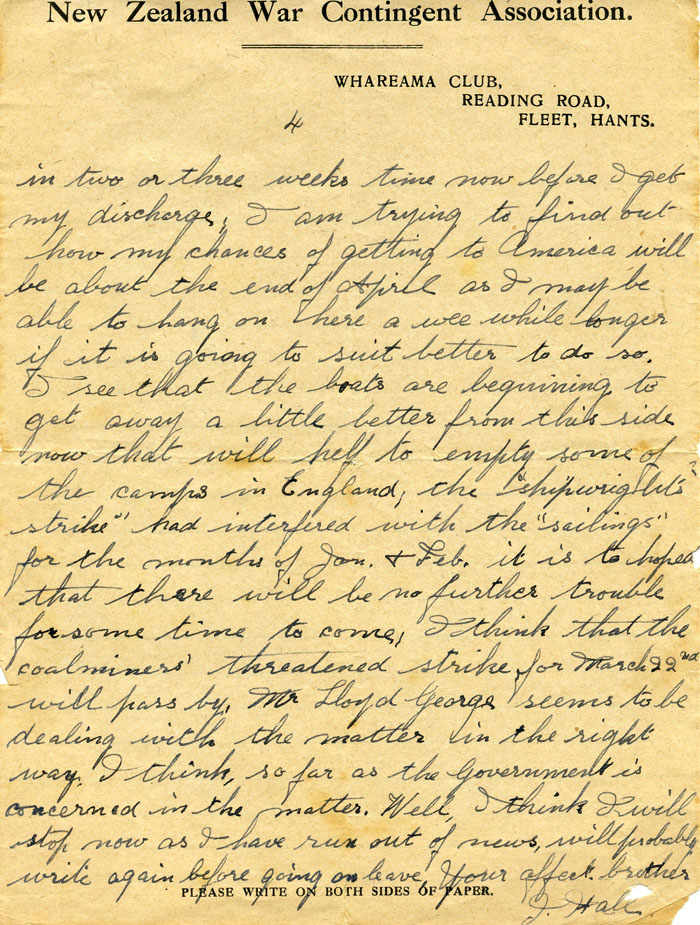 New Zealand War Contingent Association.
WHAREAMA CLUB,
READING ROAD,
FLEET, HANTS.
4
in two or three weeks time now before I get
my discharge, I am trying to find out
how my chances of getting to America will
be about the end of April as I may be
able to hang on here a wee while longer
if it is going to suit better to do so.
I see that the boats are beginning to
get away a little better from this side
now that will help to empty some of
the camps in England, the "shipwrights
strike" had interfered with the "sailings"
for the months of Jan. & Feb. it is to hoped
that there will be no further trouble
for some time to come, I think that the
coalminers' threatened strike for March 22nd
will pass by, Mr Lloyd George seems to be
dealing with the matter in the right
way. I think, so far as the Government is
concerned in the matter. Well, I think I will
stop now as I have run out of news, will probably
write again before going on leave, Your affect. brother
PLEASE WRITE ON BOTH SIDES OF PAPER.
J. Hall.